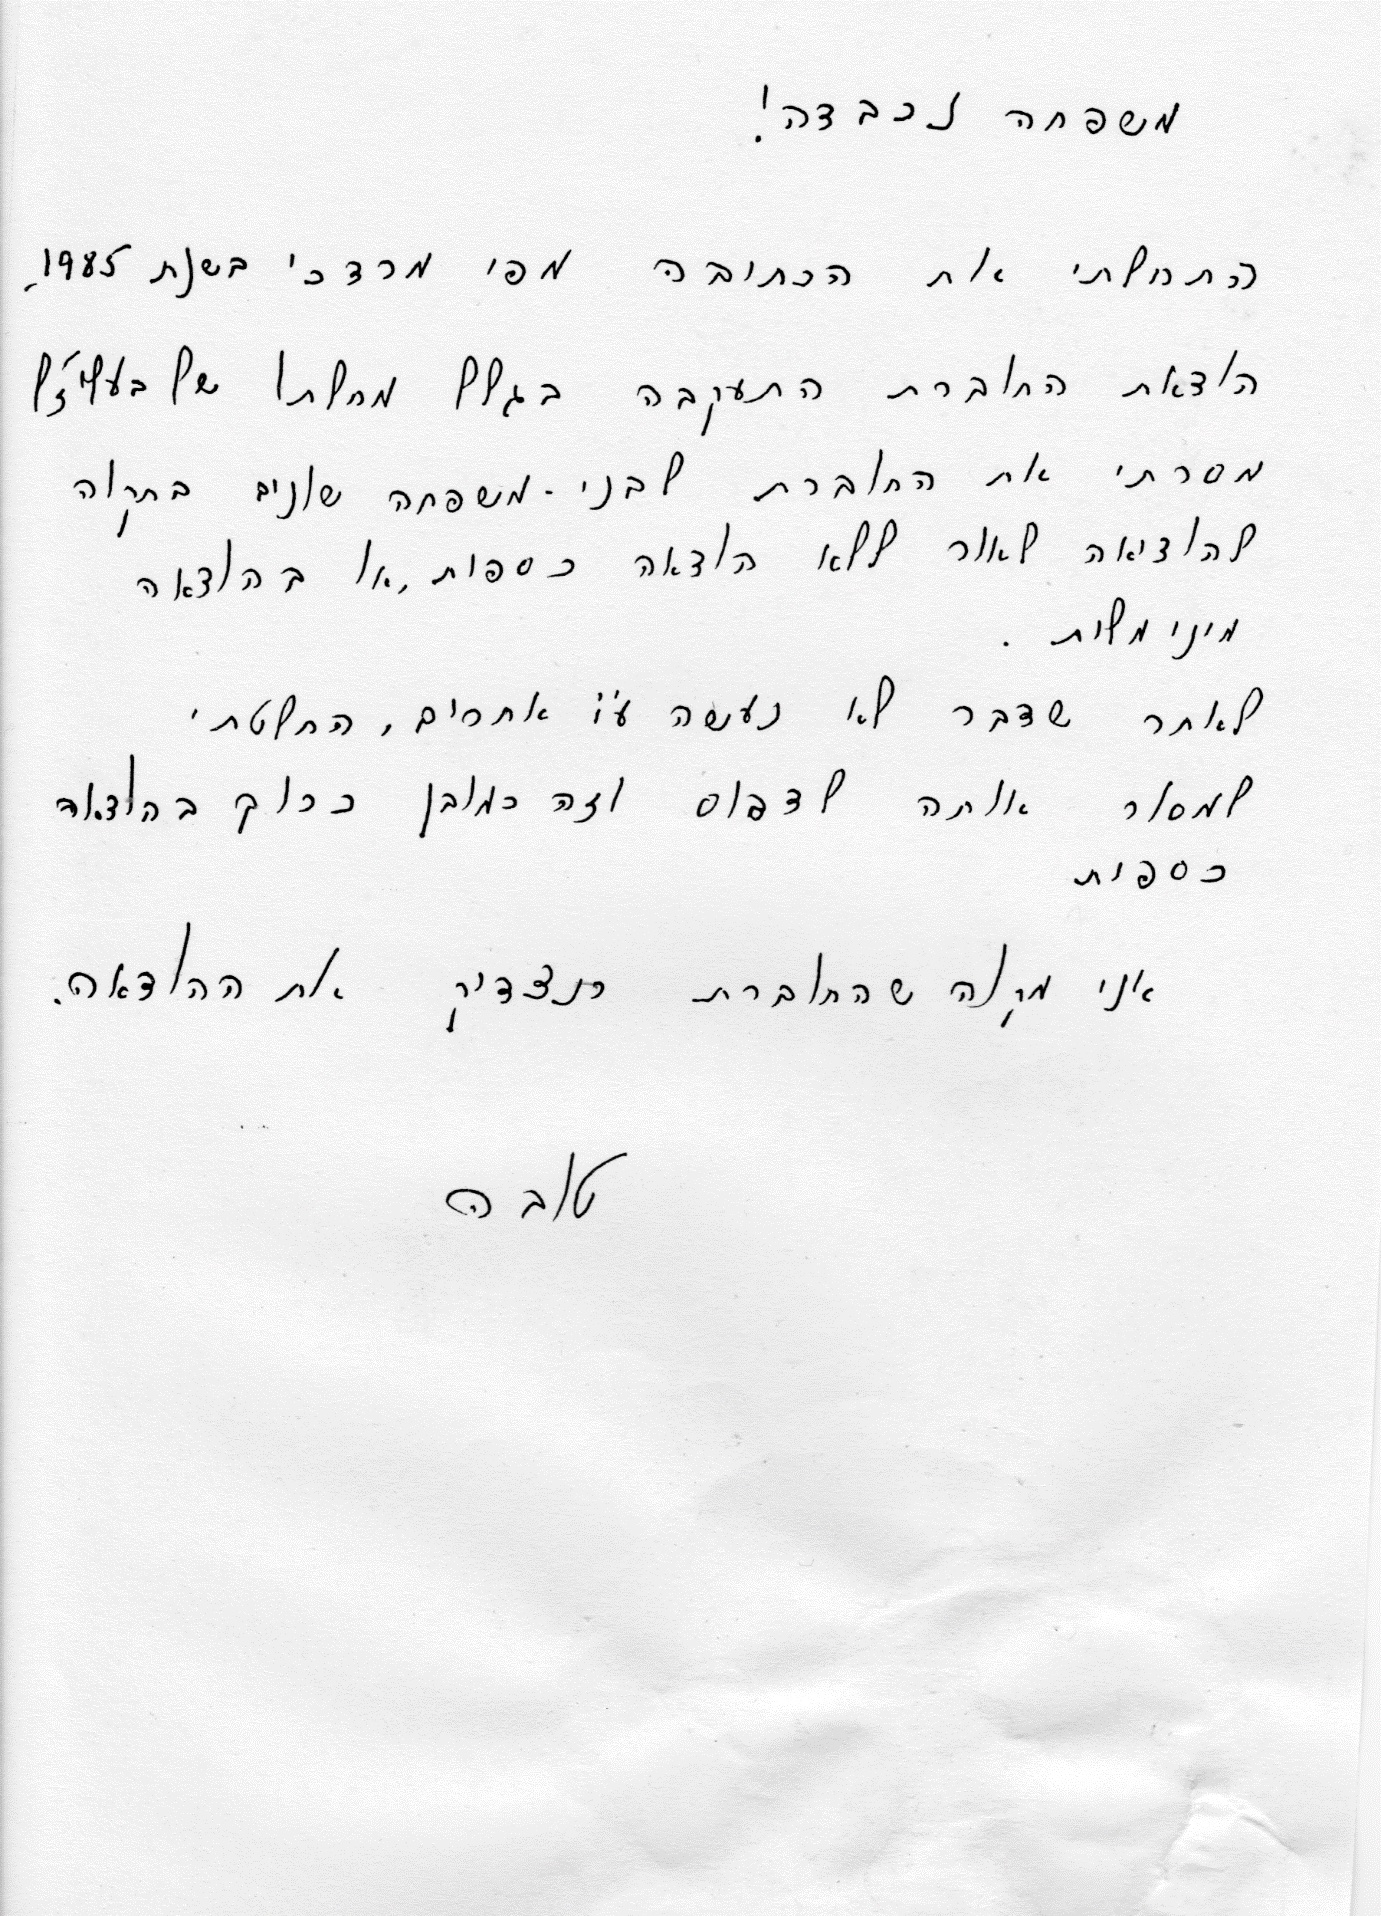 משפחה נכבדה!
התחלתי את הכתיבה מפי מרדכי בשנת 1985.
הוצאת החוברת התעכבה בגלל מחלתו של בעלי ז"ל
מסרתי את החוברת לבני-משפחה שונים בתקוה
להוציאה לאור ללא הוצאה כספית, או בהוצאה
מינימלית.
לאחר שדבר לא נעשה ע"י אחרים, החלטתי
למסור אותה לדפוס וזה כמובן כרוך בהוצאה
כספית
אני מקוה שהחוברת תצדיק את ההוצאה.
טובה